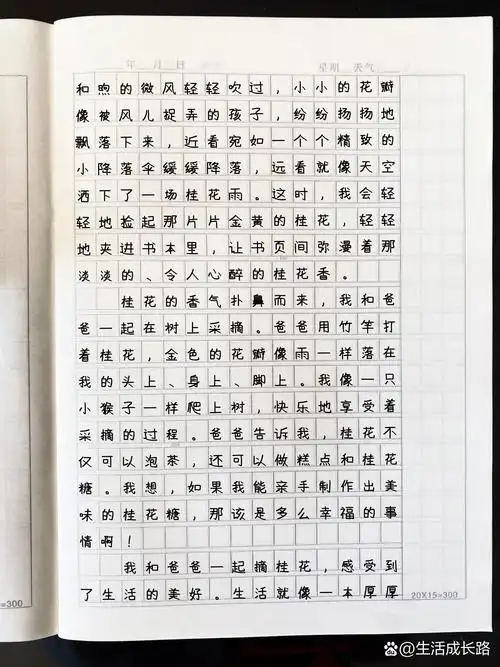 年 月 日 星期 天气
和煦的微风轻轻吹过，小小的花瓣
像被风儿捉弄的孩子，纷纷扬扬地
飘落下来，近看宛如一个个精致的
小降落伞缓缓降落，远看就像天空
洒下了一场桂花雨。这时，我会轻
轻地捡起那片片金黄的桂花，轻轻
地夹进书本里，让书页间弥漫着那
淡淡的、令人心醉的桂花香。
桂花的香气扑鼻而来，我和爸
爸一起在树上采摘。爸爸用竹竿打
着桂花，金色的花瓣像雨一样落在
我的头上、身上、脚上。我像一只
小猴子一样爬上树，快乐地享受着
采摘的过程。爸爸告诉我，桂花不
仅可以泡茶，还可以做糕点和桂花
糖。我想，如果我能亲手制作出美
味的桂花糖，那该是多么幸福的事
情啊！
我和爸爸一起摘桂花，感受到
了生活的美好。生活就像一本厚厚
20X15=300
=300
@生活成长路